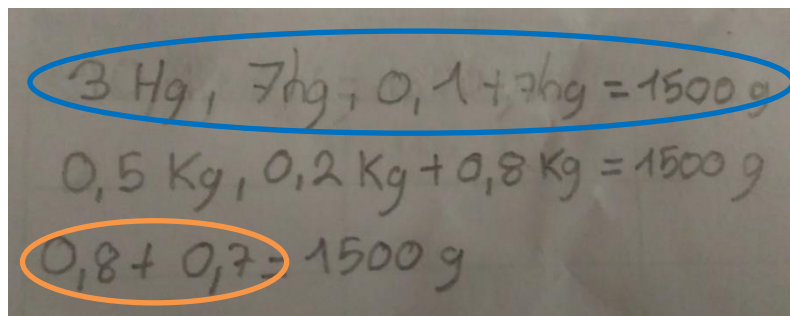 3 Hg, 7hg, 0,1 + 7hg = 1500 g
0,5 Kg, 0,2 Kg + 0,8 Kg = 1500 g
0,8 + 0,7 = 1500 g